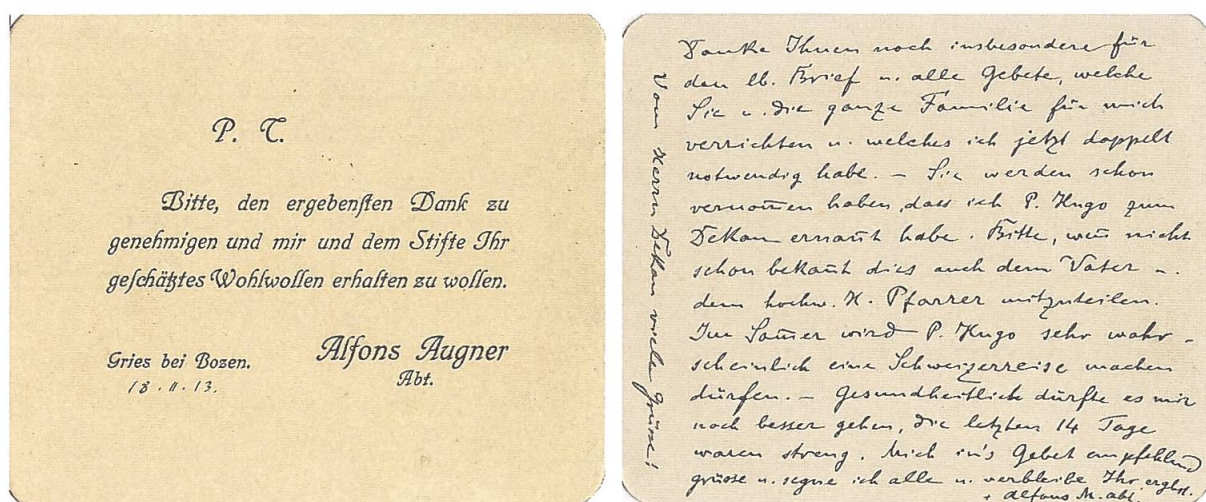 P. T.
Bitte, den ergebensten Dank zu
genehmigen und mir und dem Stifte Ihr
geschätztes Wohlwollen erhalten zu wollen.
Gries bei Bozen.
18. II. 13.
Alfons Augner
Abt.
Danke Ihnen noch insbesondere für
den lb. Brief u. alle Gebete, welche
Sie u. die ganze Familie für mich
verrichten u. welches ich jetzt doppelt
notwendig habe. – Sie werden schon
vernom̄en haben, dass ich P. Hugo zum
Dekan ernan̄t habe. Bitte, wen̄ nicht
schon bekan̄t dies auch dem Vater u.
dem hochw. H. Pfarrer mitzuteilen.
Im Som̄er wird P. Hugo sehr wahr-
scheinlich eine Schweizerreise machen
dürfen. – Gesundheitlich dürfte es mir
noch besser gehen, die letzten 14 Tage
waren streng. Mich in's Gebet empfehlend
grüsse u. segne ich alle u. verbleibe Ihr ergbst.
+ Alfons M. abt.
Vom Herrn Dekan viele Grüsse!